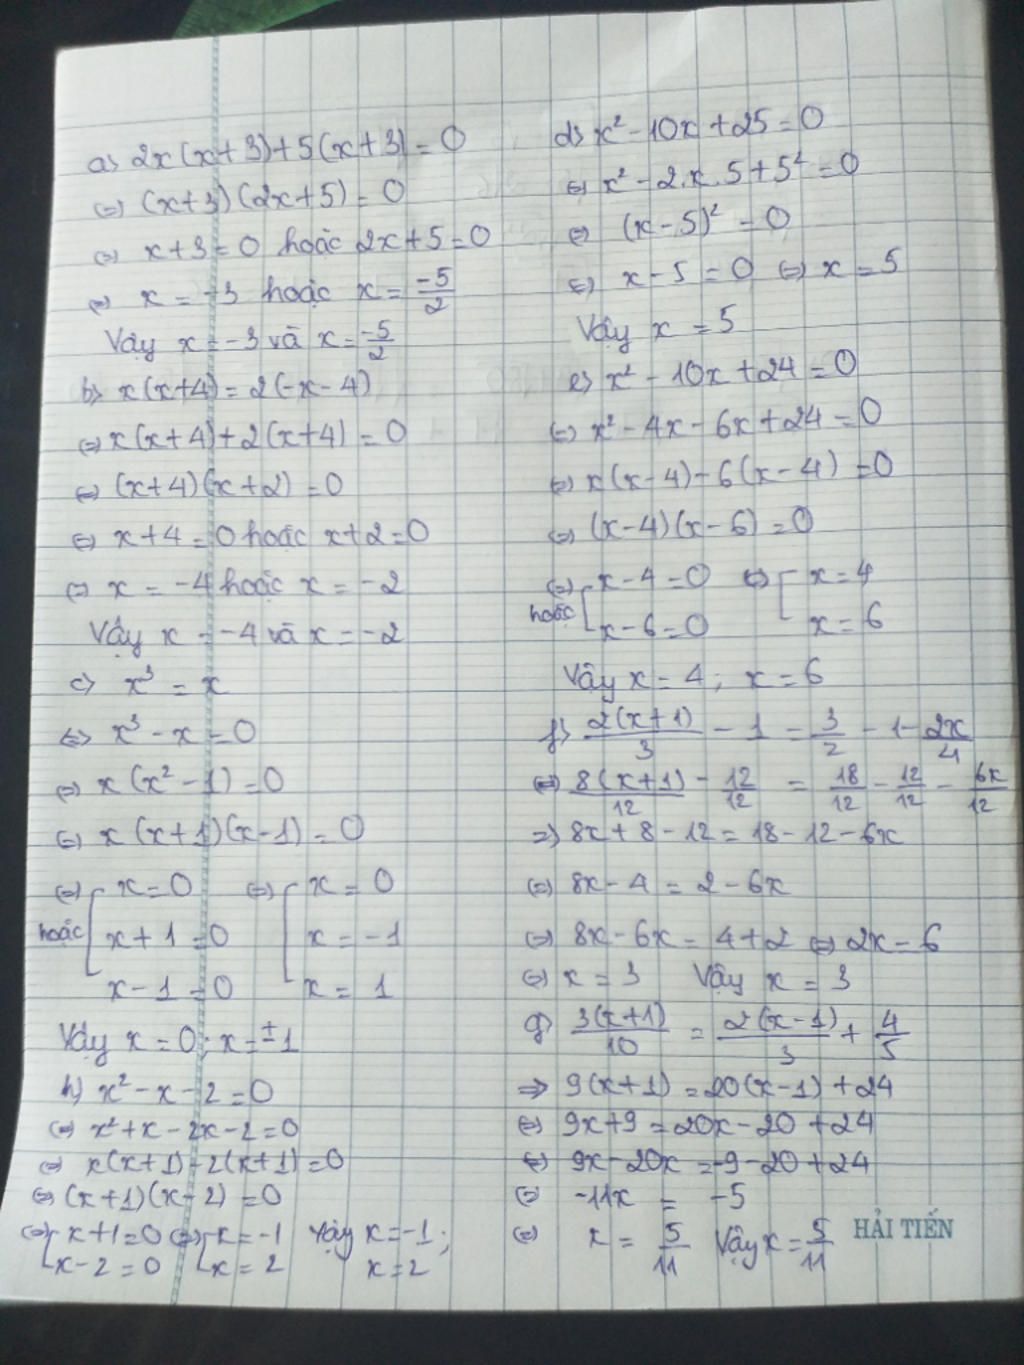 a) 2x(x+3)+5(x+3) = 0
⇔ (x+3)(2x+5) = 0
⇔ x+3=0 hoặc 2x+5=0
⇔ x = -3 hoặc x = -5/2
Vậy x = -3 và x = -5/2
b) x(x+4) = 2(-x-4)
⇔ x(x+4)+2(x+4) = 0
⇔ (x+4)(x+2) = 0
⇔ x+4=0 hoặc x+2=0
⇔ x = -4 hoặc x = -2
Vậy x = -4 và x = -2
c) x³ = x
⇔ x³ - x = 0
⇔ x(x²-1) = 0
⇔ x(x+1)(x-1) = 0
⇔ [x=0 ⇔ [x = 0
hoặc x+1=0 x = -1
x-1=0 x = 1
Vậy x = 0; x = ±1
h) x² - x - 2 = 0
⇔ x²+x-2x-2=0
⇔ x(x+1)-2(x+1)=0
⇔ (x+1)(x-2) = 0
⇔ [x+1=0 ⇔ [x=-1 Vậy x=-1;
x-2=0 x=2 x=2
d) x² - 10x + 25 = 0
⇔ x² - 2.x.5 + 5² = 0
⇔ (x-5)² = 0
⇔ x-5 = 0 ⇔ x = 5
Vậy x = 5
e) x² - 10x + 24 = 0
⇔ x² - 4x - 6x + 24 = 0
⇔ x(x-4) - 6(x-4) = 0
⇔ (x-4)(x-6) = 0
⇔ [x-4=0 ⇔ [x=4
hoặc x-6=0 x=6
Vậy x = 4; x = 6
f) 2(x+1)/3 - 1 = 3/2 - 1 - 2x/4
⇔ 8(x+1)/12 - 12/12 = 18/12 - 12/12 - 6x/12
⇒ 8x+8-12 = 18-12-6x
⇔ 8x-4 = 2-6x
⇔ 8x-6x = 4+2 ⇔ 2x = 6
⇔ x = 3 Vậy x = 3
g) 3(x+1)/10 = 2(x-1)/3 + 4/5
⇒ 9(x+1) = 20(x-1) + 24
⇔ 9x+9 = 20x-20+24
⇔ 9x-20x = -9-20+24
⇔ -11x = -5
⇔ x = 5/11 Vậy x = 5/11
HẢI TIẾN